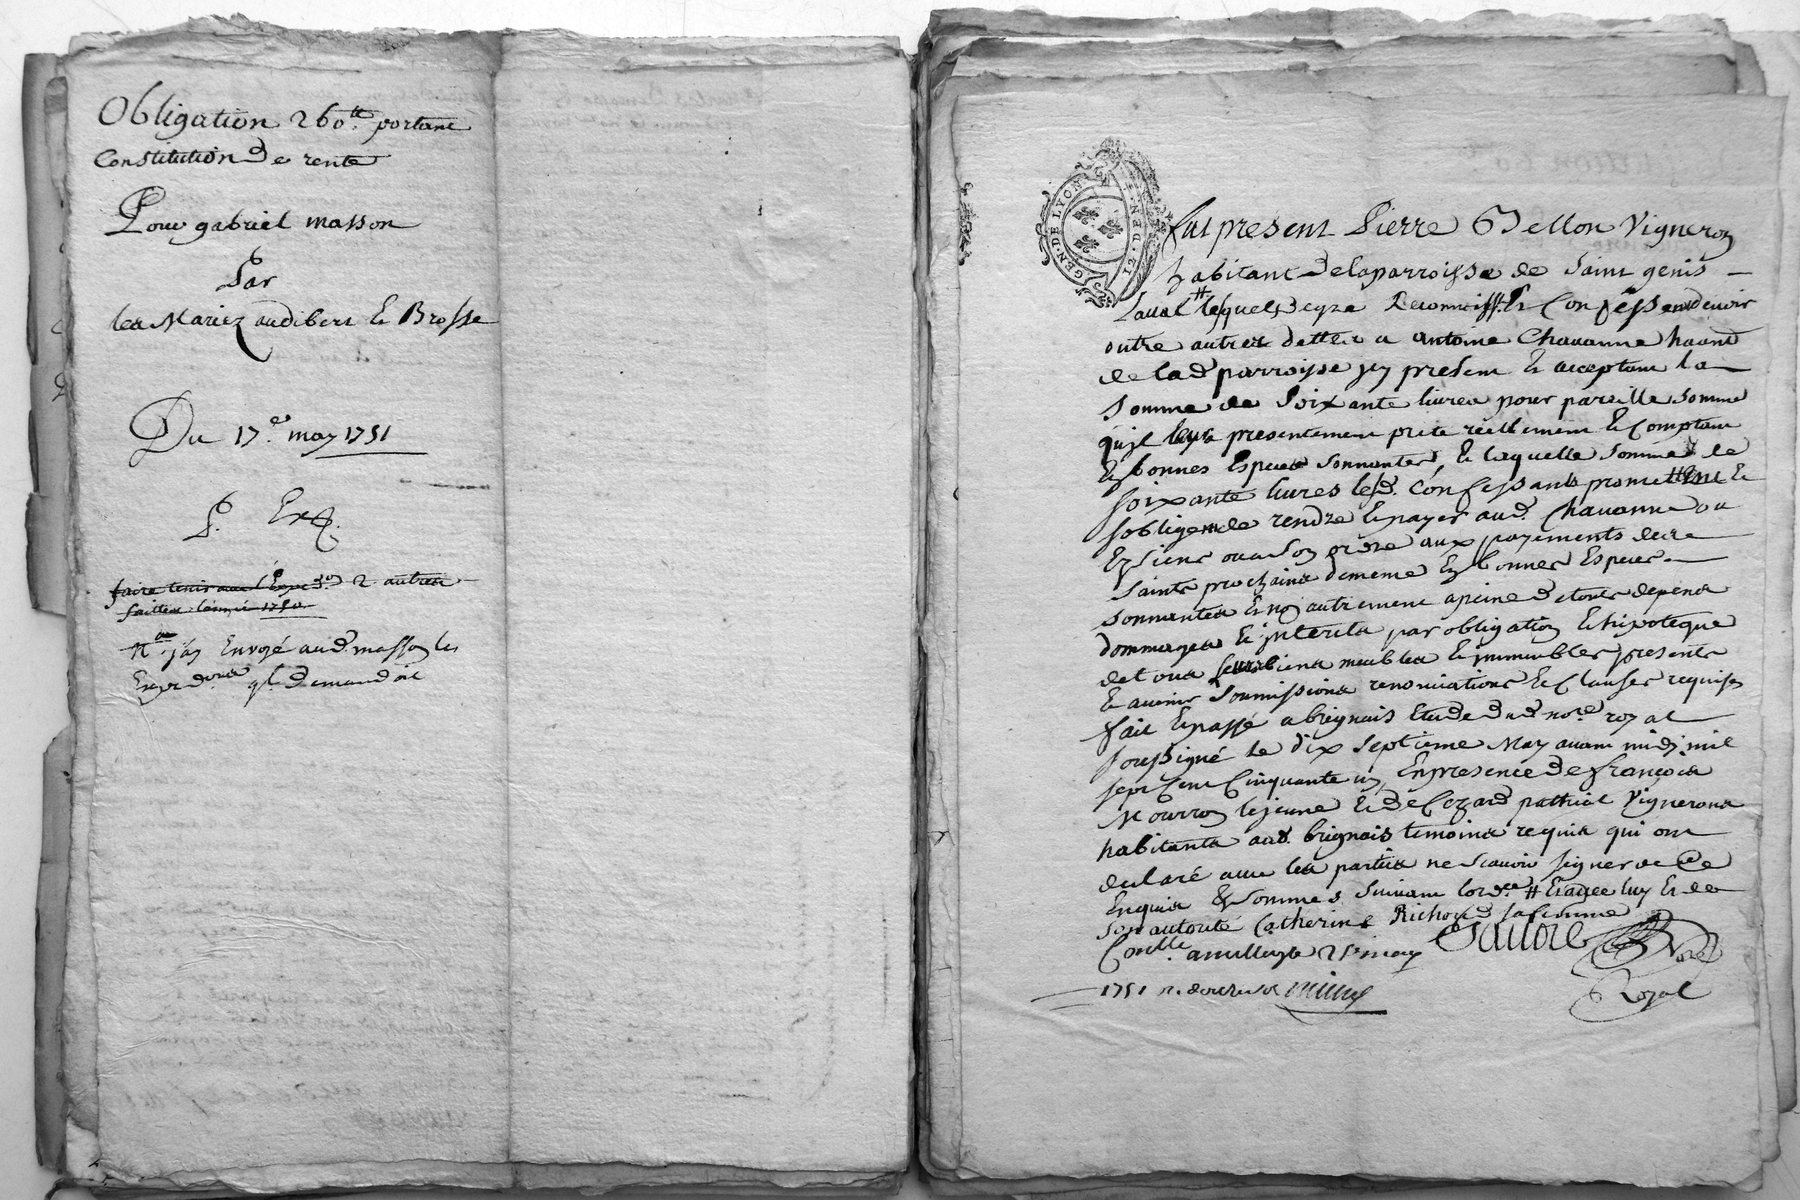 Obligation 260.tt portant
Constitution de rente
Pour gabriel masson
Par
les Mariez audibert & Brosse
Du 17.e may 1751
P. Exp.
faire tenir aud 2 autres
faittes l'année 1750
Na. j'ay Envoyé aud masson les
ql. demandoit
GEN. DE LYON
12. DEN
fut present Pierre Bellon Vigneron
habitant delaparroisse de Saint genis
Laval # lesquels degré Reconnoiss.t & Confessent devoir
outre autres dettes a antoine Chavanne haant
de lad parroisse jcy present & acceptant la
Somme de Soixante livres pour pareille somme
qu'jl leur a presentement preté réellement & Comptant
En bonnes Especes sonnantes, & laquelle somme de
soixante livres lesd. Confessants promettent &
sobligent de rendre & payer aud. Chavanne ou
Es siens ou a son ordre aux payements de
Saints prochains dememe En bonnes Especes
sonnantes & non autrement a peine de tous depens
dommages & jnterets par obligation & hipoteque
de tous leurs biens meubles & jmmeubles presents
& avenir soumissions renonciations & Clauses requises
fait & passé a brignais Etude dud no.re royal
soussigné le dix septieme May avant midy mil
sept Cent Cinquante un, En presence de françois
Mourron lejeune & de Cezard pathiot Vignerons
habitants aud. brignais temoins requis qui ont
declaré avec les parties ne scavoir signer de ce
Enquis & sommes suivant lord.ce # & avec luy & de
son autorité Catherine Richard sa femme
Conlle. amillery le 21 may
1751 r. douze sols
Nore
Royal